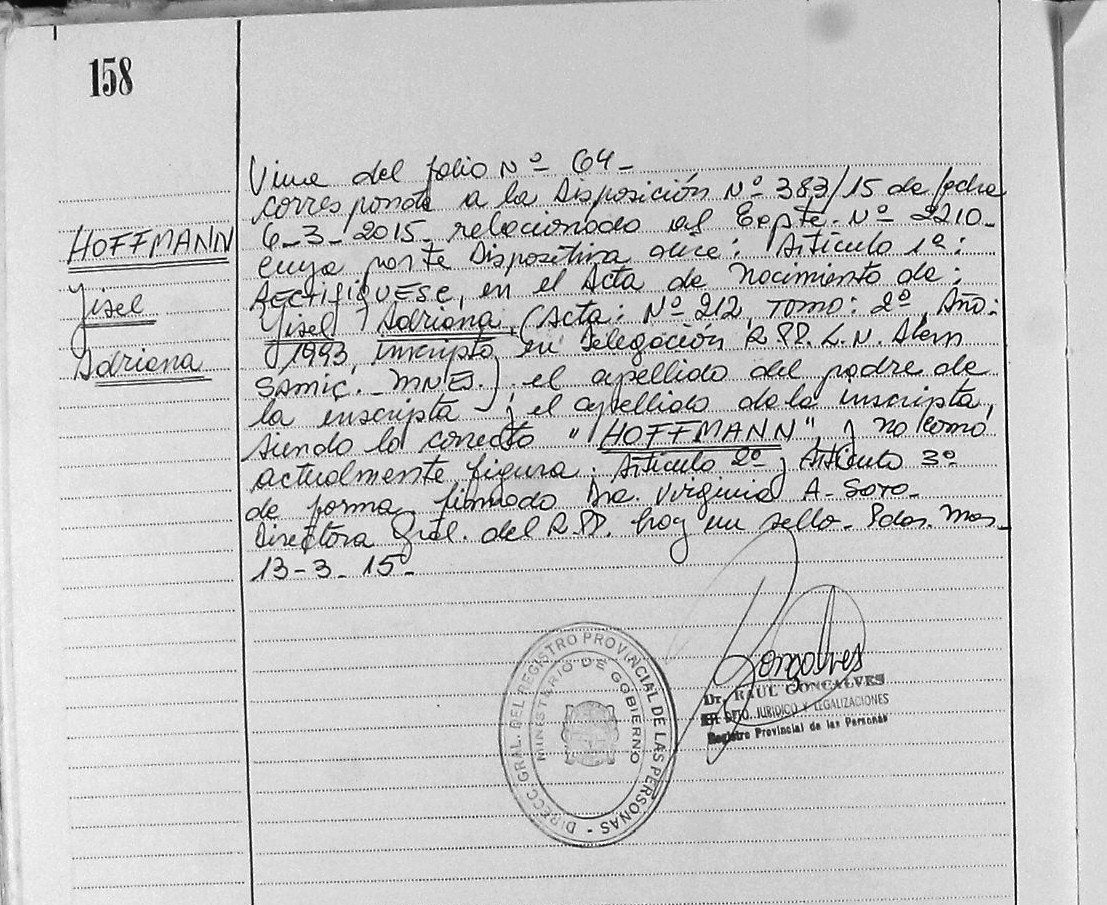 158
HOFFMANN
Yisel
Adriana
Viene del folio Nº 64-
corresponde a la Disposición Nº 383/15 de fecha
6-3-2015- relacionado al Expte. Nº 2210-
cuya parte Dispositiva dice: Artículo 1º:
RECTIFIQUESE, en el Acta de Nacimiento de:
Yisel Adriana, (Acta: Nº 212, Tomo: 2º, Año:
1993, inscripta en Delegación R.PP. L.N. Alem
SAMIC. MNES.) el apellido del padre de
la inscripta y el apellido de la inscripta,
siendo lo correcto "HOFFMANN" y no como
actualmente figura. Artículo 2º y Artículo 3º
de forma, firmado Dra. Virginia A. SOTO-
Directora Gral. del R.PP. hay un sello- Pdas. Mnes-
13-3-15-
Gonçalves
Dr. RAUL GONCALVES
DPTO. JURIDICO Y LEGALIZACIONES
Registro Provincial de las Personas
DIRECC. GRAL. DEL REGISTRO PROVINCIAL DE LAS PERSONAS -
MINISTERIO DE GOBIERNO